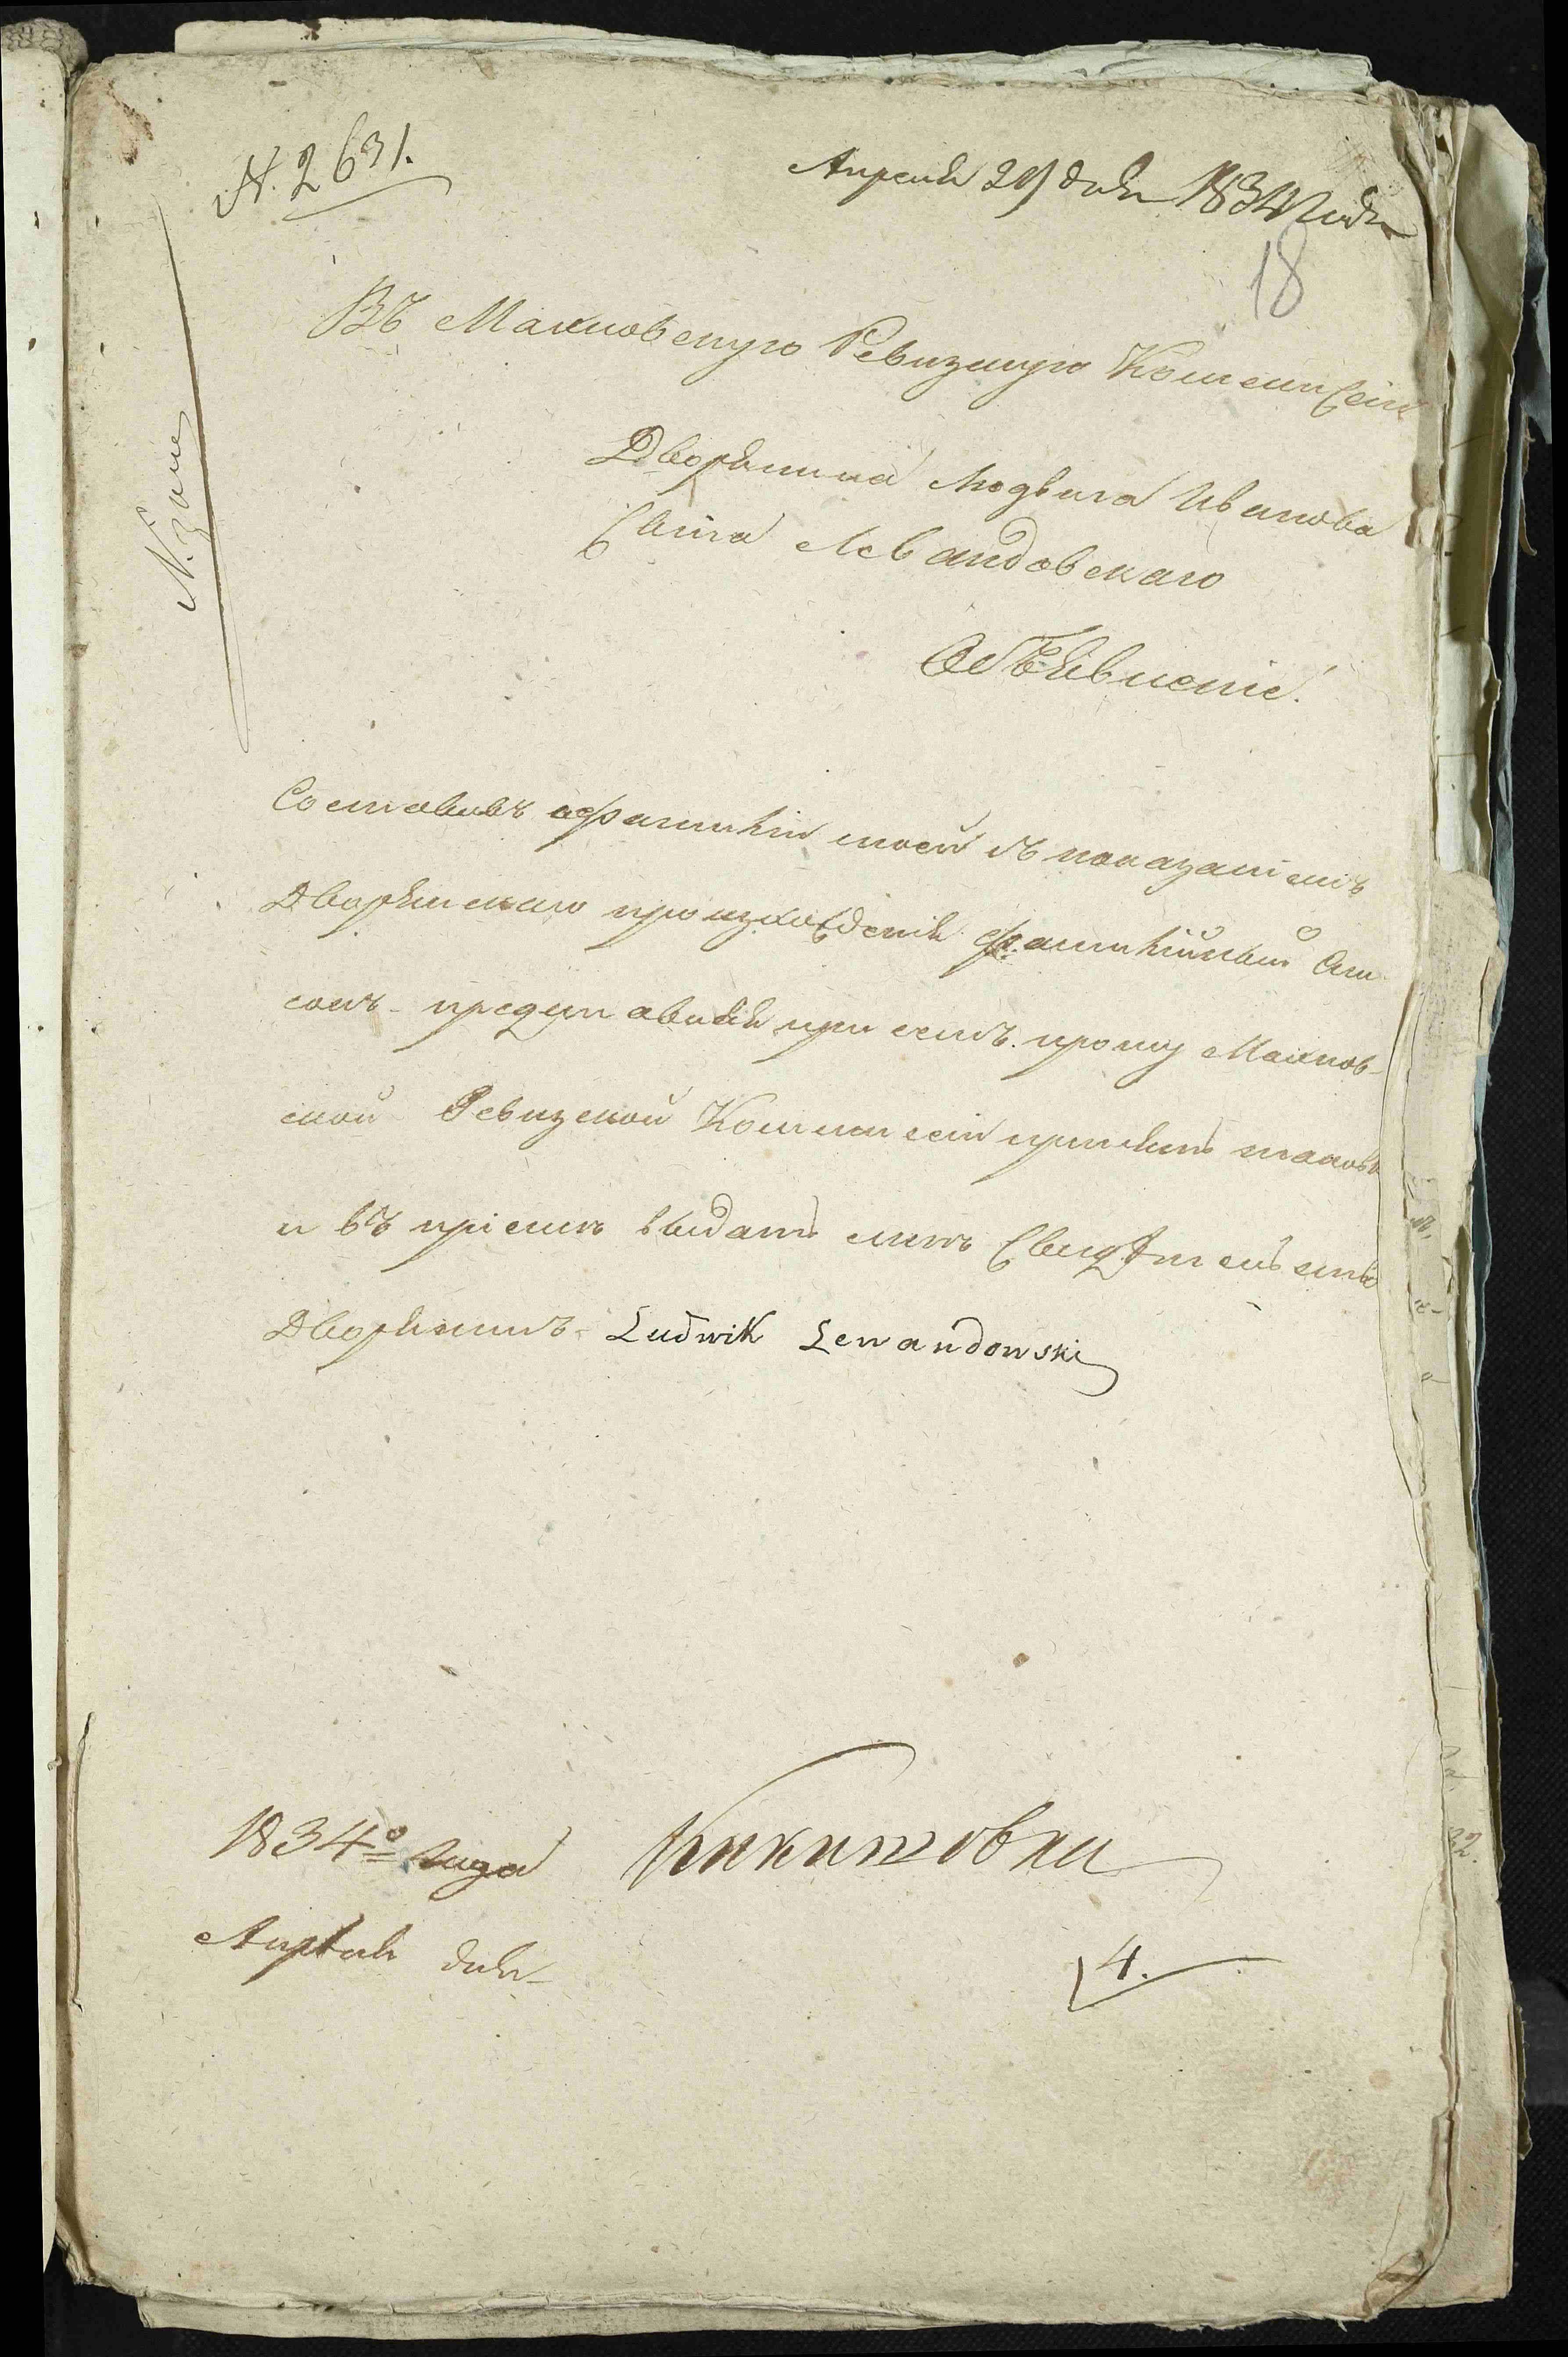 N. 2631.
Апреля 29 дня 1834 года
18
Въ Махновскую Ревизкую Коммиссію
Дворянина Людвига Иванова
Сына Левандовскаго
Объявленіе.
Составивъ о фамиліи моей съ показаніемъ
Дворянскаго произхожденія фамилійный
сокъ - представляя при семъ. прошу Махнов-
ской Ревизской Коммиссіи принять таковы
и въ пріемѣ выдать мнѣ Свидѣтельство
Дворянинъ - Ludwik Lewandowski
1834º года
Апреля дня
4.